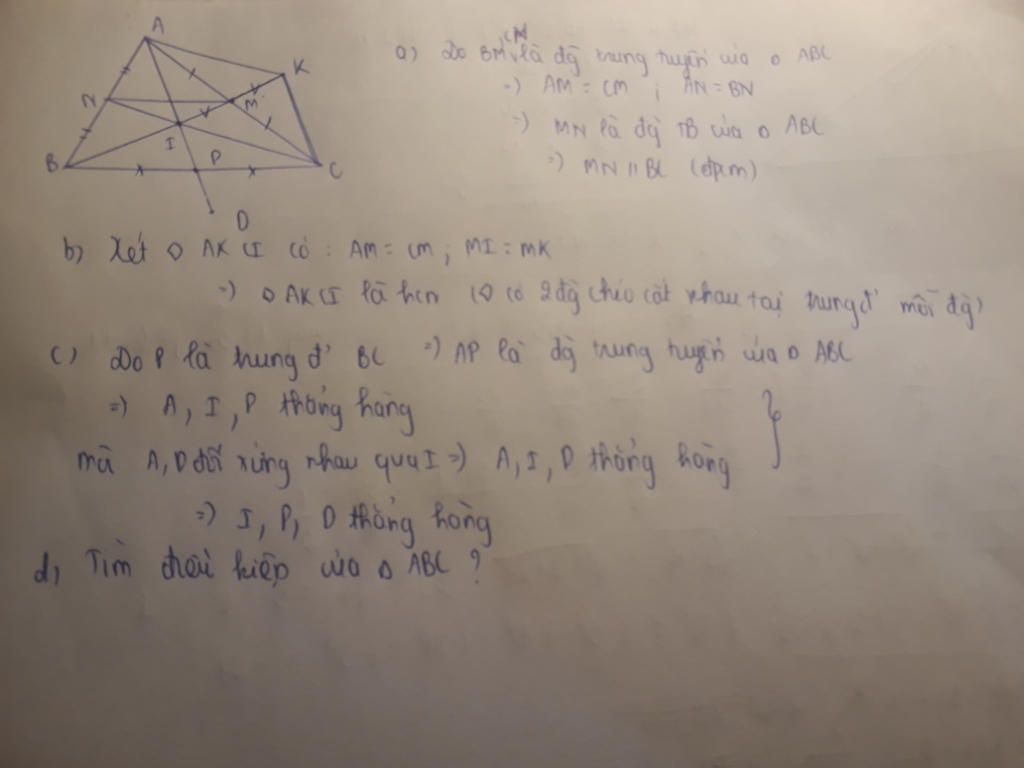 A
K
N
M
I
P
B
C
D
a) Do BM, CN là đg trung tuyến của Δ ABC
=) AM = CM ; AN = BN
=) MN là đg TB của Δ ABC
=) MN // BC (đpcm)
b) Xét ◇ AKCI có : AM = CM ; MI = MK
=) ◇ AKCI là hbh (◇ có 2 đg chéo cắt nhau tại trung đ' mỗi đg)
c) Do P là trung đ' BC =) AP là đg trung tuyến của Δ ABC
=) A, I, P thẳng hàng
mà A, D đối xứng nhau qua I =) A, I, D thẳng hàng }
=) I, P, D thẳng hàng
d, Tìm điều kiện của Δ ABC ?